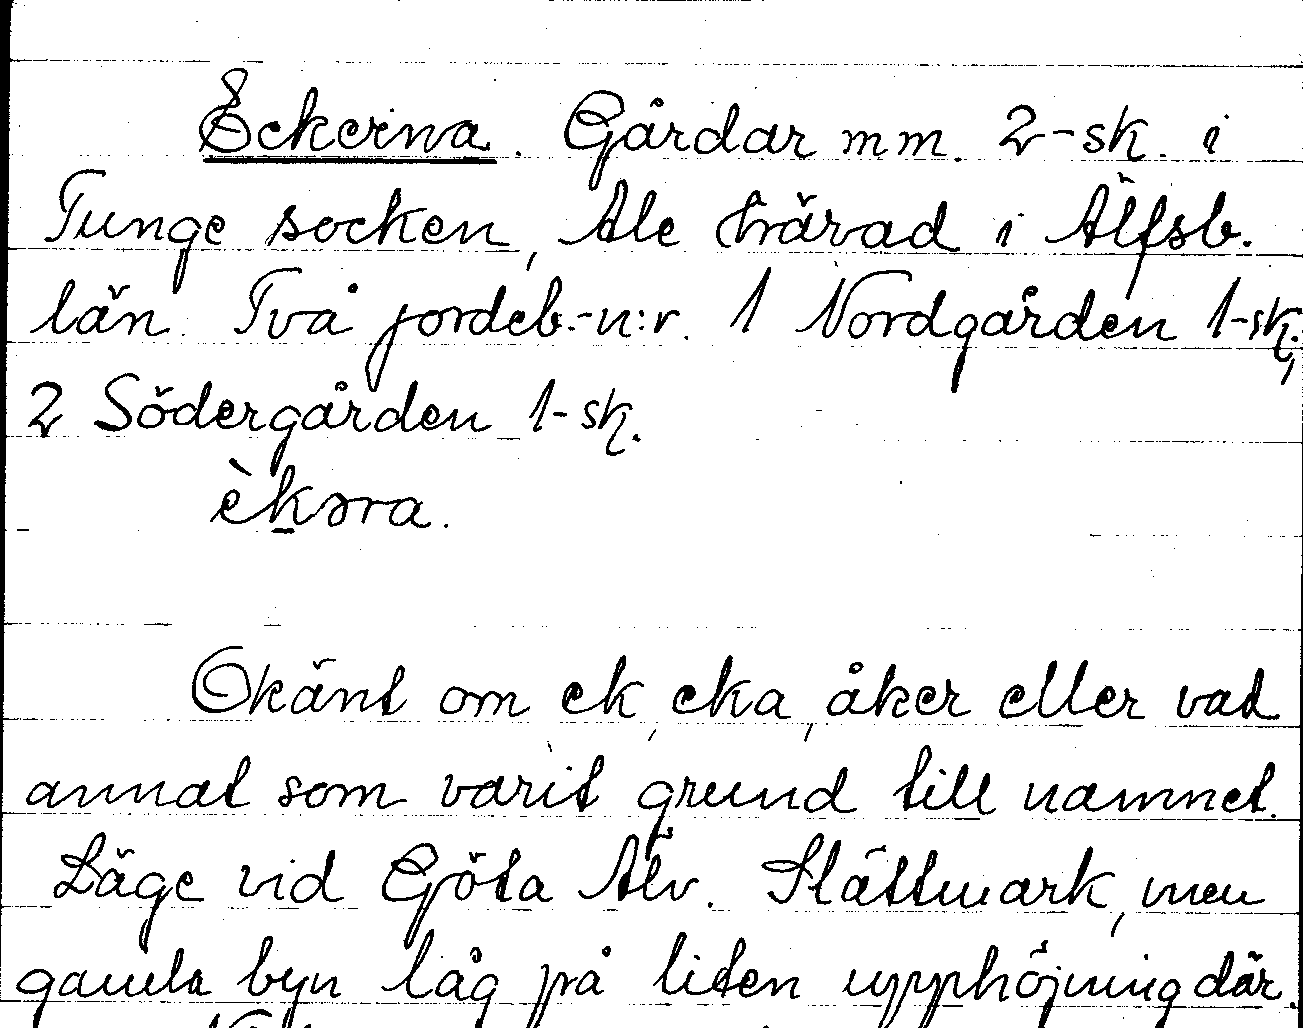 Eckerna. Gårdar mm. 2-sk. i
Tunge socken, Ale härad i Älfsb.
län. Två jordeb.-n:r. 1 Nordgården 1-sk.,
2 Södergården 1-sk.
èkəra.
Okänt om ek, eka, åker eller vad
annat som varit grund till namnet.
Läge vid Göta Älv. Slättmark, men
gamla byn låg på liten upphöjning där.